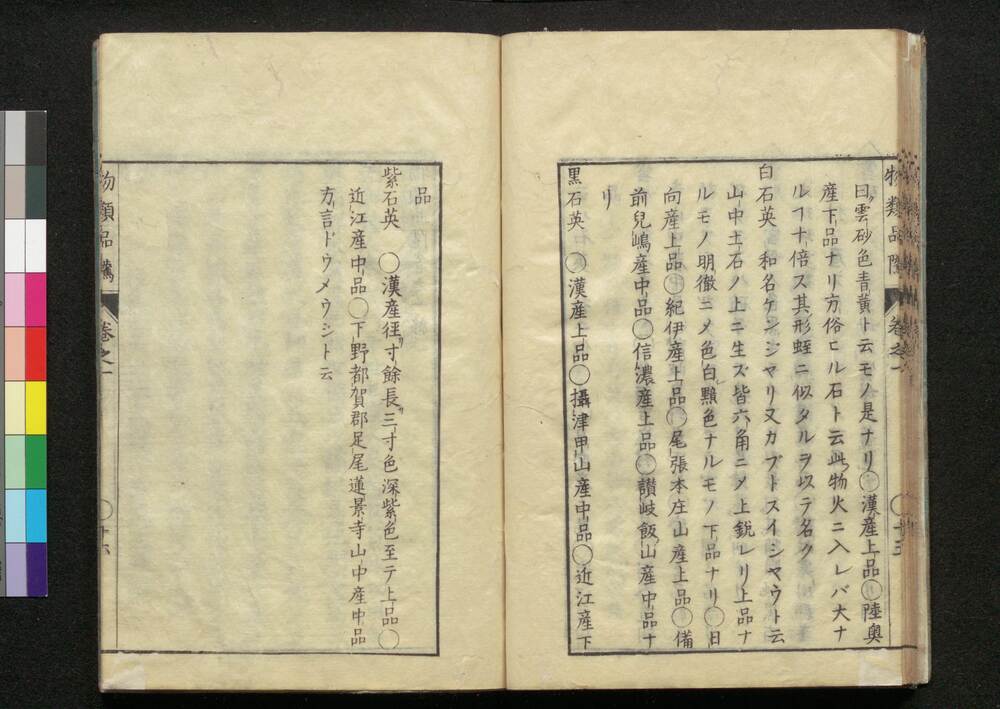 物類品隲 卷之一 〇十五
曰雲砂色青黄ト云モノ是ナリ〇漢産上品〇陸奥
産下品ナリ方俗ヒル石ト云此物火ニ入レバ大ナ
ルヿ十倍ス其形蛭ニ似タルヲ以テ名ク
白石英 和名ケンジヤリ又カブトスイシヤウト云
山中土石ノ上ニ生ズ皆六角ニメ上鋭レリ上品ナ
ルモノ明徹ニメ色白黯色ナルモノ下品ナリ〇日
向産上品〇紀伊産上品〇尾張本庄山産上品〇備
前兒嶋産中品〇信濃産上品〇讃岐飯山産中品ナ
リ
黒石英 〇漢産上品〇攝津甲山産中品〇近江産下
品
紫石英 〇漢産徑寸餘長三寸色深紫色至テ上品〇
近江産中品〇下野都賀郡足尾蓮景寺山中産中品
方言ドウメウシト云
物類品隲 卷之一 〇十六